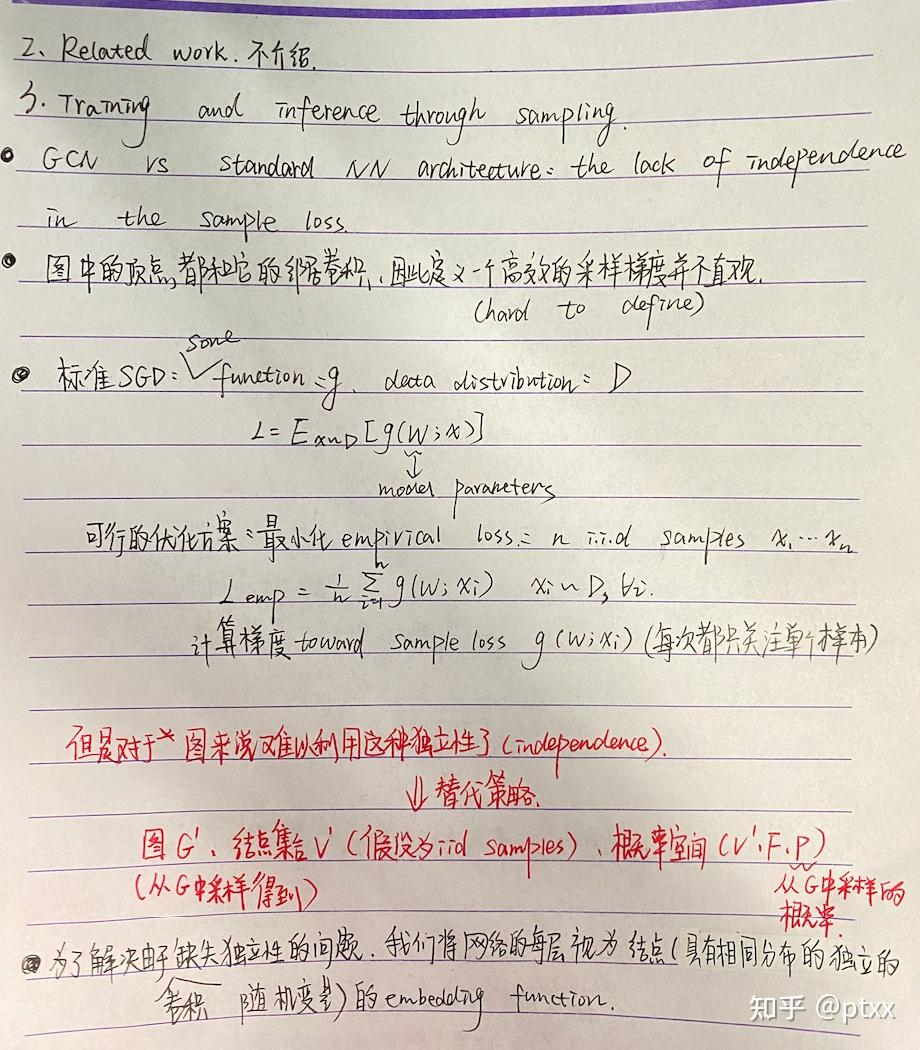 2、Related work. 不介绍.
3. Training and inference through sampling.
GCN vs standard NN architecture: the lack of independence
in the sample loss.
图中的顶点,都和它的邻居卷积,因此定义一个高效的采样梯度并不直观.
(hard to define)
some
标准SGD: function: g. data distribution: D
L = E x~D [g(W;x)]
↓
model parameters
可行的优化方案:最小化 empirical loss: n i.i.d samples x1 ... xn
L emp = 1/n Σ i=1 n g(W; xi) xi ~ D, ∀i.
计算梯度toward sample loss g(W;xi) (每次都只关注单个样本)
但是对于 图来说难以利用这种独立性了(independence).
⇓ 替代策略.
图 G'、结点集合 V' (假设为iid samples)、概率空间 (V'.F.P)
(从G中采样得到) 从G中采样的
概率.
为了解决由于缺失独立性的问题.我们将网络的每层视为 结点(具有相同分布的独立的
卷积 随机变量)的embedding function.
知乎 @ptxx